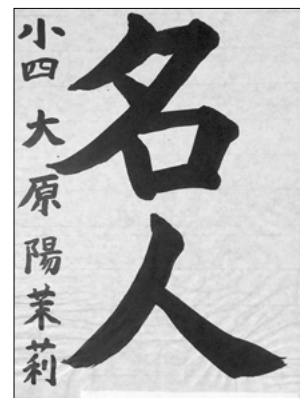 名人
小四 大原陽茉莉